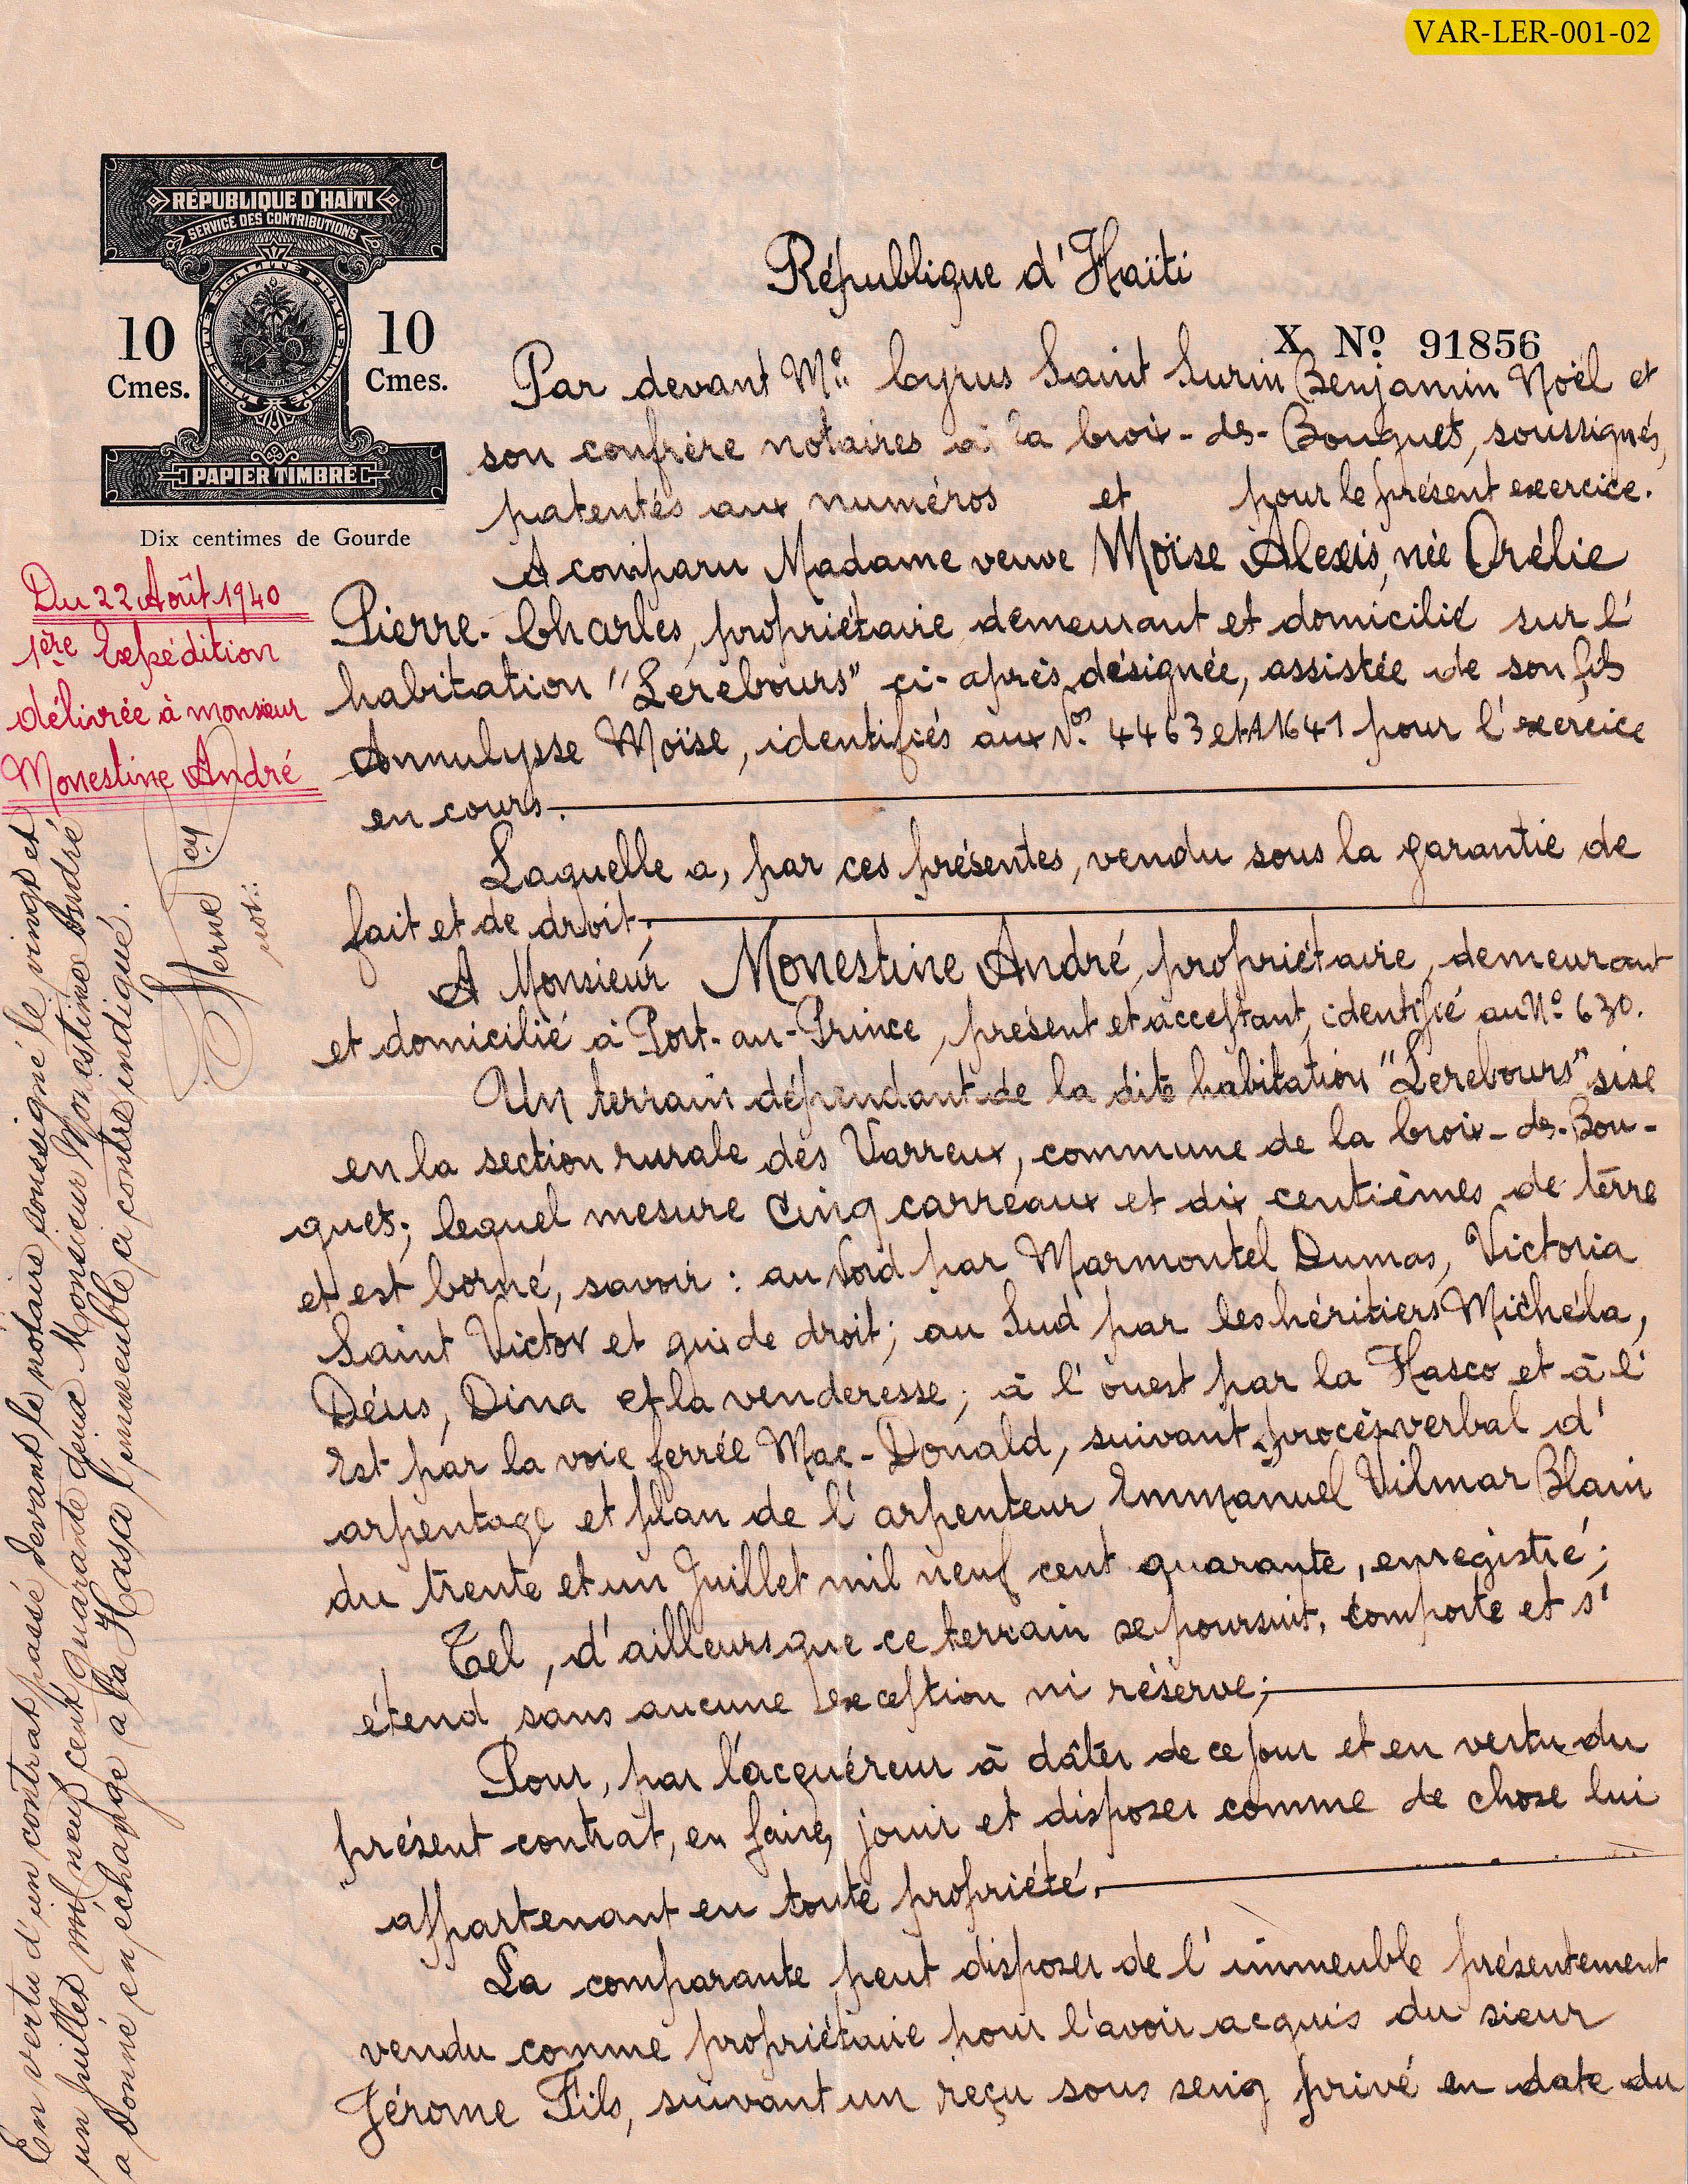 VAR-LER-001-02
RÉPUBLIQUE D'HAÏTI
SERVICE DES CONTRIBUTIONS
10 Cmes.
10 Cmes.
PAPIER TIMBRÉ
Dix centimes de Gourde
République d'Haïti
X Nº 91856
Par devant Me. Cyrus Saint Surin Benjamin Noël et
son confrère notaires à la Croix-des-Bouquets, soussignés,
patentés aux numéros et pour le présent exercice.
A comparu Madame veuve Moïse Alexis, née Orélie
Pierre-Charles, propriétaire demeurant et domicilié sur l'
habitation "Lerebours" ci-après désignée, assistée de son fils
Annulysse Moïse, identifiés aux Nos. 4463 et 11641 pour l'exercice
en cours.
Laquelle a, par ces présentes, vendu sous la garantie de
fait et de droit;
A Monsieur Monestine André, propriétaire, demeurant
et domicilié à Port-au-Prince, présent et acceptant, identifié au No 630.
Un terrain dépendant de la dite habitation "Lerebours" sise
en la section rurale des Varreux, commune de la Croix-des-Bou-
quets; lequel mesure Cinq carreaux et dix centièmes de terre
et est borné, savoir : au Nord par Marmontel Dumas, Victoria
Saint Victor et qui de droit; au Sud par les héritiers Michéla,
Déus, Dina et la venderesse; à l'ouest par la Hasco et à l'
Est par la voie ferrée Mac-Donald, suivant procès verbal d'
arpentage et plan de l'arpenteur Emmanuel Vilmar Blain
du trente et un Juillet mil neuf cent quarante, enregistré;
Tel, d'ailleurs que ce terrain se poursuit, comporte et s'
étend sans aucune exception ni réserve;
Pour, par l'acquéreur à dâter de ce jour et en vertu du
présent contrat, en faire, jouir et disposer comme de chose lui
appartenant en toute propriété.
La comparante peut disposer de l'immeuble présentement
vendu comme propriétaire pour l'avoir acquis du sieur
Jérome Fils, suivant un reçu sous seing privé en date du
Du 22 Août 1940
1ère Expédition
délivrée à monsieur
Monestine André
En vertu d'un contrat passé devant le notaire soussigné le vingt et
un Juillet mil neuf cent quarante deux Monsieur Monestine André
a donné en échange à la Hasco l'immeuble ci contre indiqué.
not::